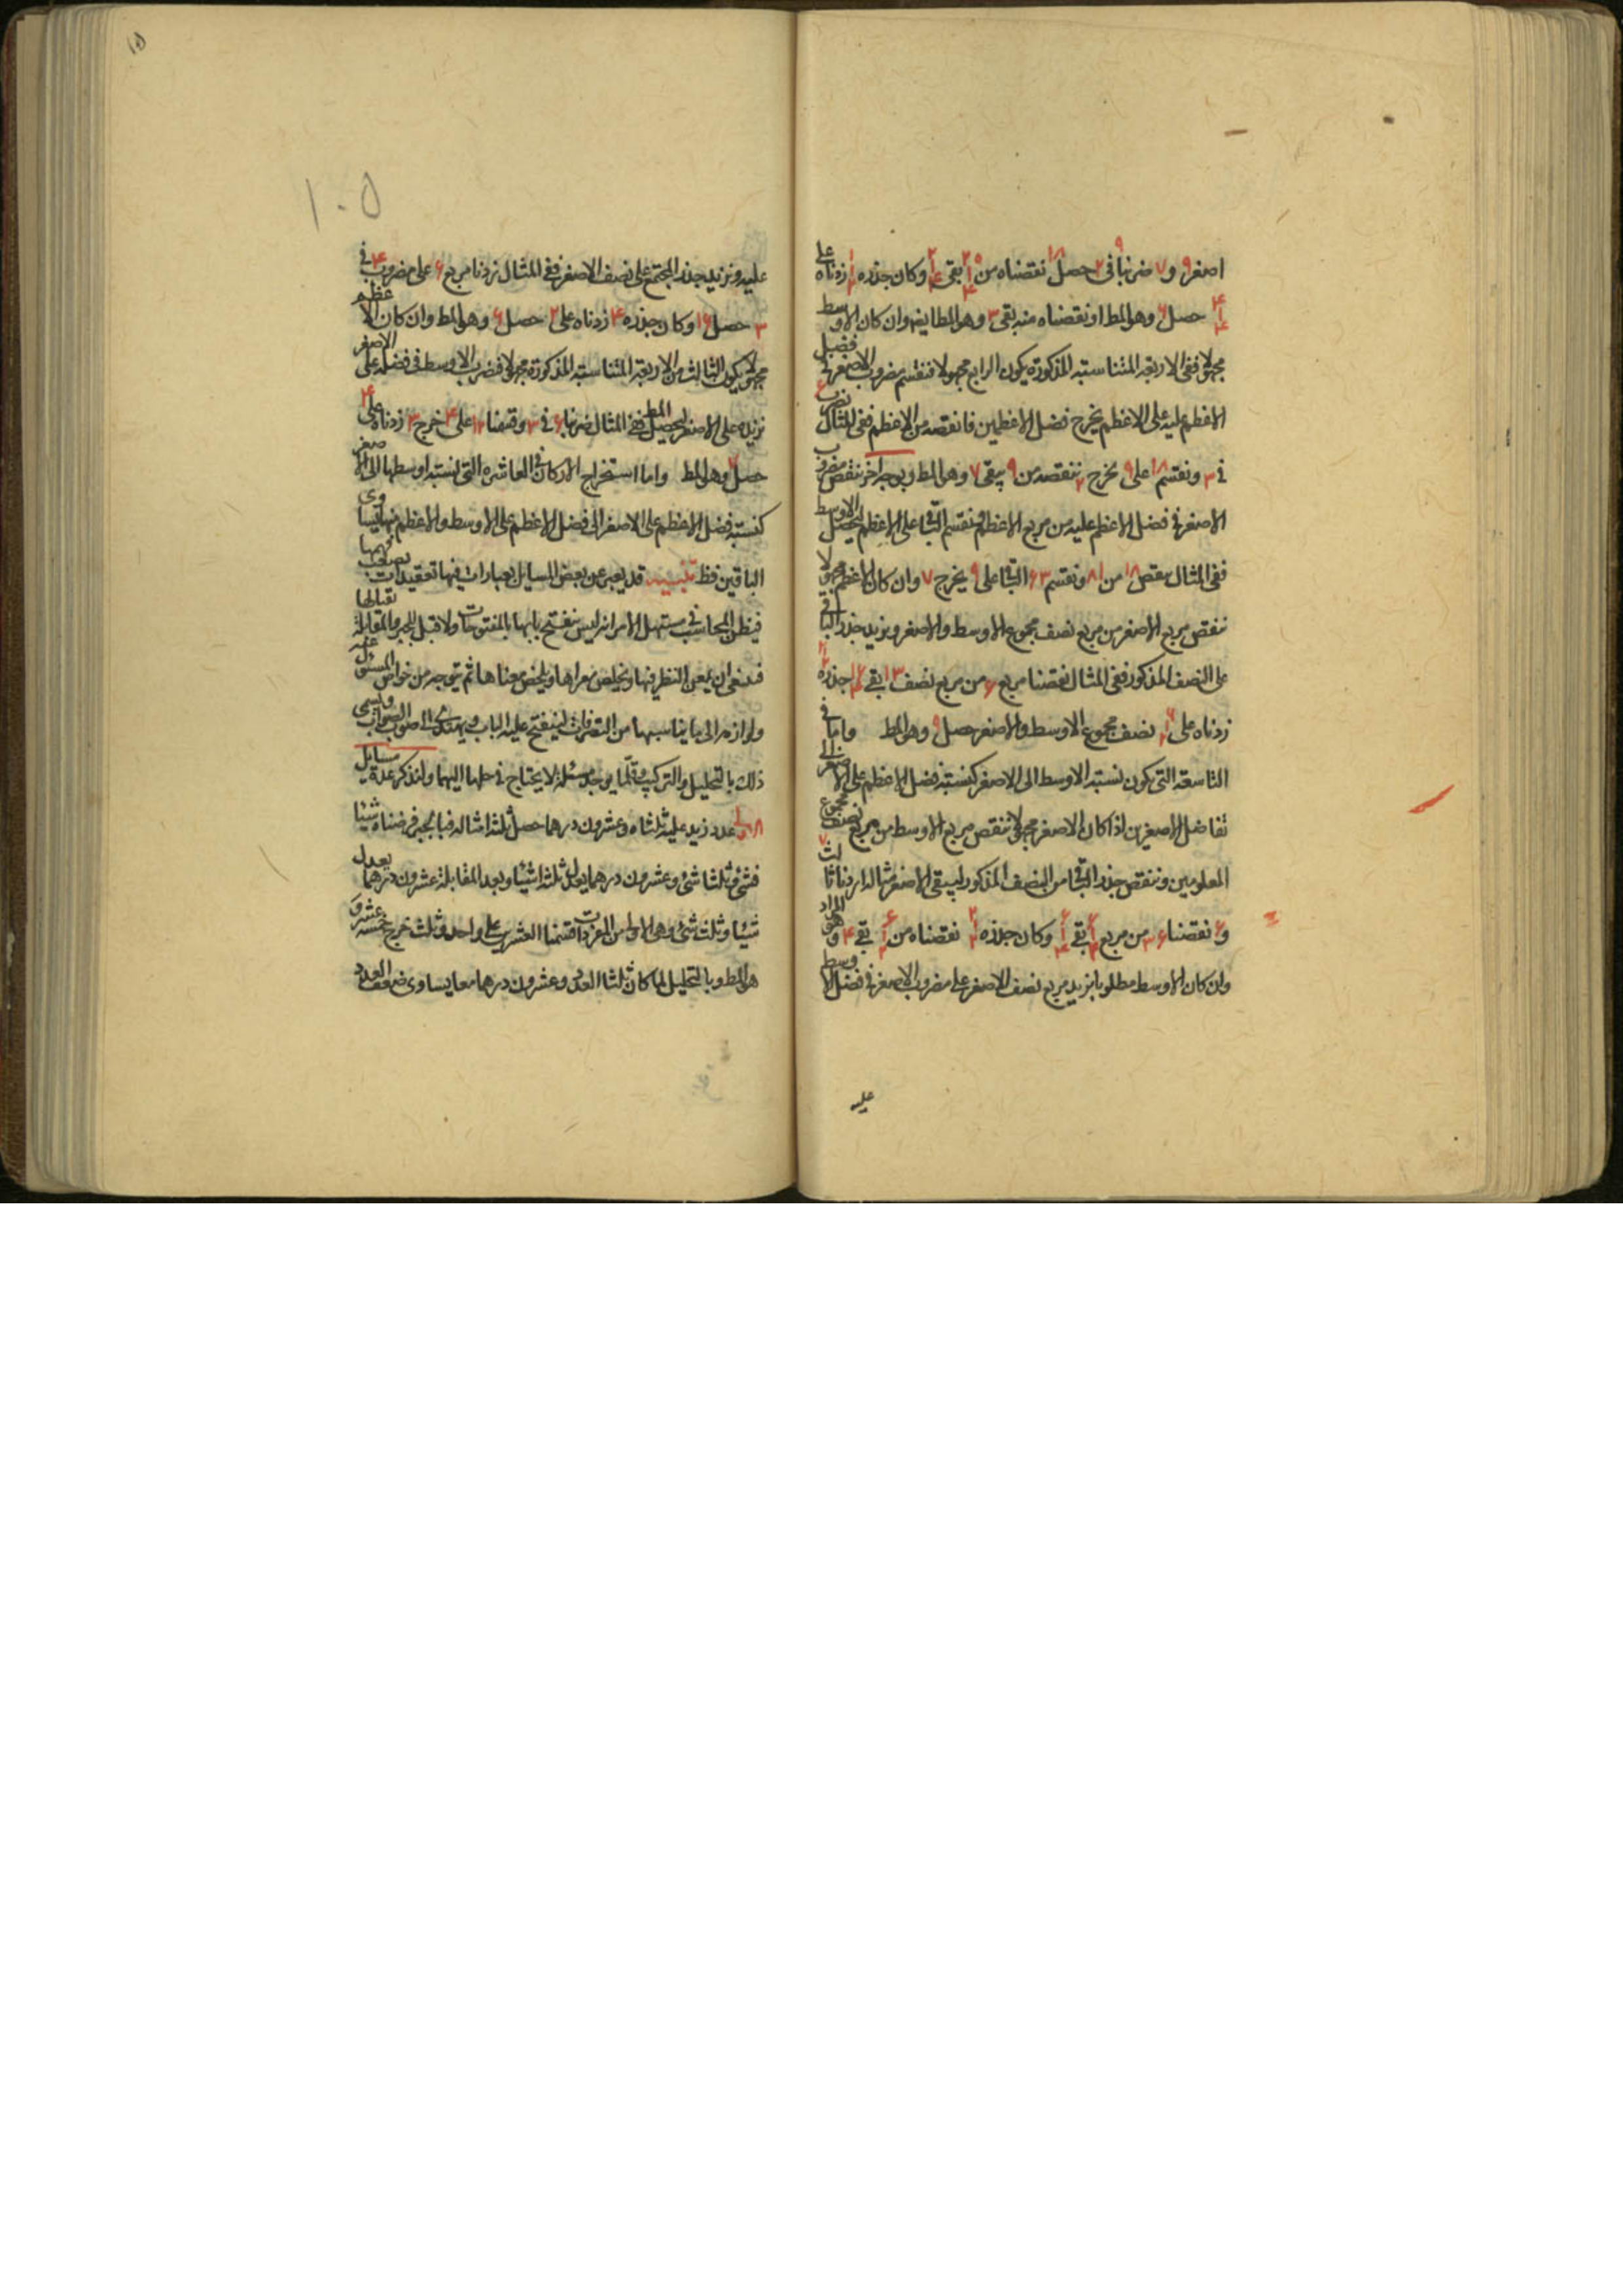 اصغر ٩ و ٧ ضربنا فى ٢ حصل ١٨ نقصناه من بقى وكان جذره زدناه على
حصل ٦ وهو المط او نقصناه منه بقى ٣ وهو المط ايضا وان كان الاوسط
مجهولا ففى الاربعة المتناسبة المذكورة يكون الرابع مجهولا فنقسم مضروب الاصغر فى فضل
الاعظم عليه على الاعظم يخرج فضل الاعظمين فانقصه من الاعظم ففى المثال نضرب ٦
فى ٣ ونقسم ١٨ على ٩ يخرج ٢ ننقصه من ٩ يبقى ٧ وهو المط وبوجه اخر ننقص مضروب
الاصغر فى فضل الاعظم عليه من مربع الاعظم ونقسم الباقى على الاعظم ليحصل الاوسط
ففى المثال ننقص ١٨ من ٨١ ونقسم ٦٣ الباقى على ٩ يخرج ٧ وان كان الاعظم مجهولا
ننقص مربع الاصغر من مربع نصف مجموع الاوسط والاصغر ونزيد جذر الباقى
على النصف المذكور ففى المثال نقصنا مربع ٦ من مربع نصف ١٣ بقى جذره
زدناه على نصف مجموع الاوسط والاصغر حصل ٩ وهو المط واما فى
التاسعة التى يكون نسبة الاوسط الى الاصغر كنسبة فضل الاعظم على الاصغر الى
تفاضل الاصغرين اذا كان الاصغر مجهولا ننقص مربع الاوسط من مربع نصف مجموع
المعلومين وننقص جذر الباقى من النصف المذكور ليبقى الاصغر مثاله اردنا ثالث
و ٦ نقصنا ٣٦ من مربع بقى وكان جذره نقصناه من بقى ٤ وهو المراد
وان كان الاوسط مطلوبا نزيد مربع نصف الاصغر على مضروب الاصغر فى فضل الاوسط
عليه
١٠٥
عليه ونزيد جذر المجتمع على نصف الاصغر ففى المثال زدنا مربع على مضروب ٤ فى
٣ حصل ١٦ وكان جذره ٤ زدناه على ٢ حصل ٦ وهو المط وان كان الاعظم
مجهولا يكون الثالث من الاربعة المتناسبة المذكورة مجهولا فنضرب الاوسط فى فضله على الاصغر
نزيده على الاصغر ليحصل المط ففى المثال ضربنا ٦ فى ٣ وقسمنا ١٢ على ٤ خرج ٣ زدناه على ٤
حصل ٧ وهو المط واما استخراج الاركان فى العاشرة التى نسبة اوسطها الى الاصغر
كنسبة فضل الاعظم على الاصغر الى فضل الاعظم على الاوسط والاعظم فيها يساوى
الباقين فظ تنبيه قد يعبر عن بعض المسايل بعبارات فيها تعقيدات يصعب فهمها
فيظن المحاسب فى مستهل الامر انه ليس ينفتح بابها بالمفتوحات ولا قبل للجبر والمقابلة تقبالها
فينبغى ان يمعن النظر فيها ويخلص مغزاها ويلخص معناها ثم يتوجه من خواص المسئول عنه
ولوازمه الى ما يناسبها من التصرفات لينفتح عليه الباب ويهتدى الى صوب الصواب ويسمى
ذلك بالتحليل والتركيب وقلما يوجد مسئلة لا يحتاج فى حلها اليهما ولنذكر عدة مسايل
عدد زيد عليه ثلثاه وعشرون درهما حصل ثلثة امثاله فبالجبر فرضناه شيئا
فشئ وثلثا شئ وعشرون درهما يعدل ثلثة اشياء وبعد المقابلة عشرون درهما يعدل
شيئا وثلث شئ وهى الاولى من المفردات قسمنا العشرين على واحد وثلث خرج خمسة عشر و
هو المط وبالتحليل لما كان ثلثا العدد وعشرون درهما معا يساوى ضعف العدد